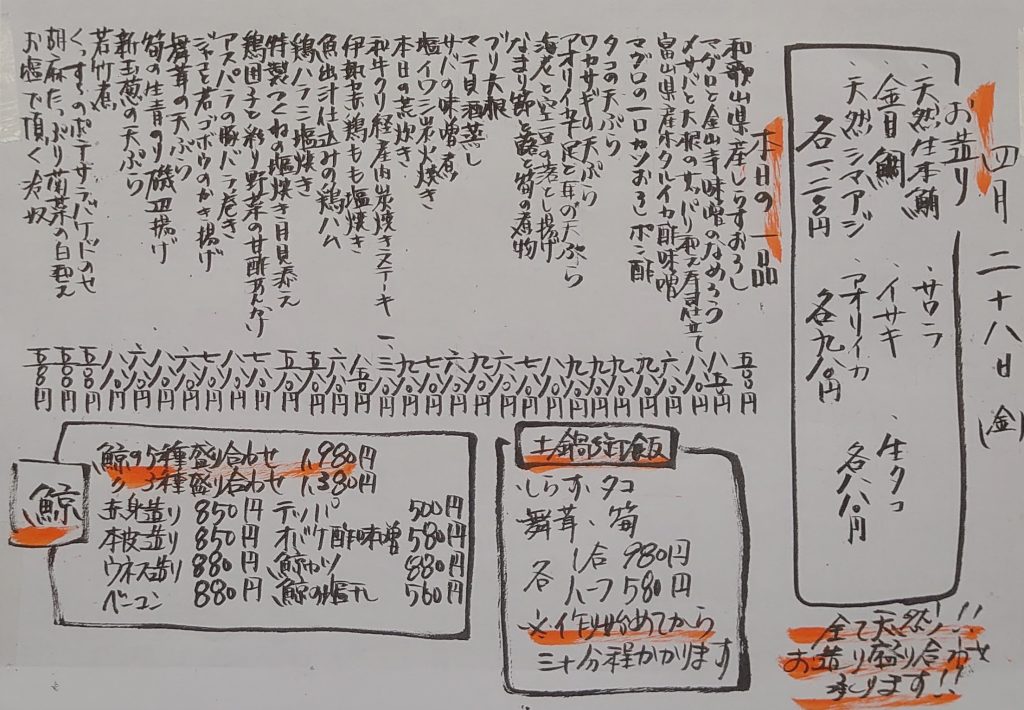 四月二十八日(金)
お造り
・天然生本鮪
・金目鯛
・天然シマアジ
各一、二八〇円
・サワラ
・イサキ
・アオリイカ
各九八〇円
・生タコ
各八八〇円
全て天然!!
お造り盛り合わせ
承ります!!
本日の一品
和歌山県産しらすおろし 五八〇円
マグロと金山寺味噌のなめろう 八五〇円
〆サバと大根のサッパリ和え寿司仕立て 八八〇円
富山県産ホタルイカ酢味噌 六八〇円
マグロの一口カツおろしポン酢 九八〇円
タコの天ぷら
ワカサギの天ぷら
アオリイカ下足と耳の天ぷら
海老と空豆の落とし揚げ
なまり節と蕗と筍の煮物
ブリ大根
マテ貝酒蒸し
サバの味噌煮
塩イワシ炭火焼き
本日の荒炊き
和牛クリ経産肉炭焼きステーキ
伊勢赤鶏もも塩焼き
魚出汁仕込みの鶏ハム
鶏ハラミ塩焼き
特製つくねの塩焼き目貝添え
鶏団子と彩り野菜の甘酢あんかけ
アスパラの豚バラ巻き
ジャコと若ゴボウのかき揚げ
舞茸の天ぷら
筍の生青のり磯辺揚げ
新玉葱の天ぷら
若竹煮
くっすものポテサラバケットのせ
胡麻たっぷり菊菜の白和え
お塩で頂く冷奴
土鍋御飯
しらす、タコ
舞茸、筍
各 1合 980円
ハーフ 580円
※作り始めてから
三十分程かかります
鯨
鯨の5種盛り合わせ 1,980円
〃 3種盛り合わせ 1,380円
赤身造り 850円 テッパ 500円
本皮造り 850円 オバケ酢味噌 580円
ウネス造り 880円 鯨カツ 880円
ベーコン 880円 鯨の塩干し 560円